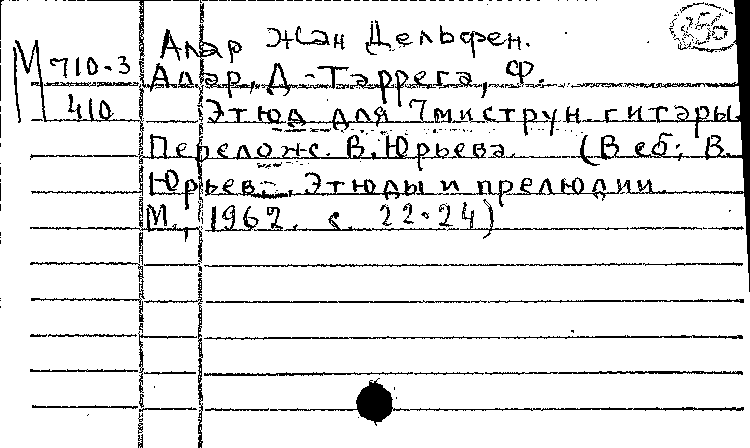 Алар Жан Дельфен.
256
М 710-3
410
Алар, Д - Таррега, Ф.
Этюд для 7миструн. гитары.
Перелож. В. Юрьева. (В сб: В.
Юрьев. Этюды и прелюдии.
М., 1962. с. 22-24)